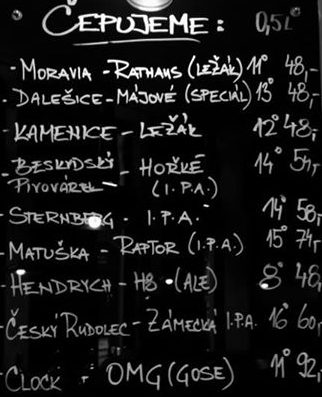 ČEPUJEME: 0,5L
- MORAVIA - RATHAUS (LEŽÁK) 11° 48,-
- DALEŠICE - MÁJOVÉ (SPECIÁL) 13° 48,-
- KAMENICE - LEŽÁK 12° 48,-
- BESKYDSKÝ - HOŘKÉ 14° 54,-
PIVOVÁREK - (I.P.A.)
- STERNBERG - I.P.A. 14° 58,-
- MATUŠKA - RAPTOR (I.P.A.) 15° 74,-
- HENDRYCH - H8 - (ALE) 8° 48,
- ČESKÝ RUDOLEC - ZÁMECKÁ I.P.A. 16° 60,-
- CLOCK - OMG (GOSE) 11° 92,-